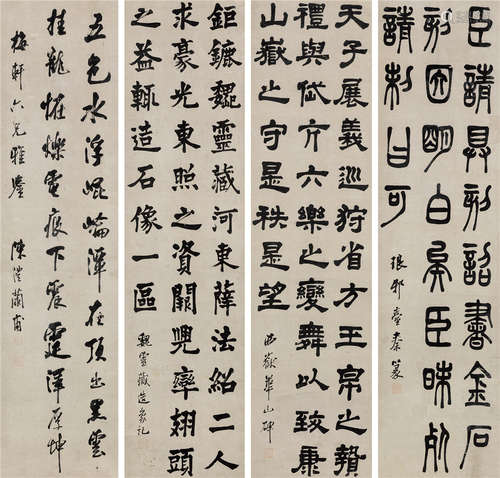 臣請具刻詔書金石
刻因明白矣臣昧死
請制曰可
琅邪臺秦篆
天子展義巡狩省方玉帛之贄
禮與岱亢六樂之變舞以致康
山嶽之守是秩是望
西嶽華山碑
鉅鏕魏靈藏河東薛法紹二人
求豪光東照之資闕兜率翅頭
之益輒造石像一區
魏靈藏造象記
五色水浮崐崘潭在頂出黑雲
挂龍怪爍電痕下震霆澤厚坤
梅軒六兄雅鑒 陳澧蘭甫